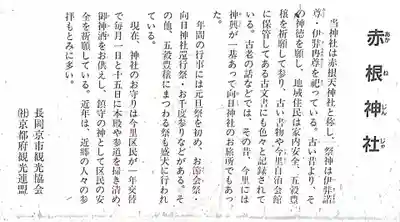 赤根神社
あかねじんじゃ
当神社は赤根天神社と称し、祭神は伊弉諾
尊・伊弉冉尊を祀っている。古い昔より、そ
の神徳を願し、地域住民は家内安全、五穀豊
穣を祈願して参り、古い書物や今里自治会館
に保管してある古文書にも色々と記録されて
いる。古老の話などでは、その昔、今里には
神列が一基あって向日神社のお旅所でもあっ
た。
年間の行事には元旦祭を初め、お節会祭・
向日神社渡行祭・お千度参りなどがある。そ
の他、五穀豊穣にまつわる祭も盛大に行われ
ている。
現在、神社のお守りは今里区民が一年交替
で毎月一日と十五日に本殿や参道を掃き清め、
御神酒をお供えし、鎮守の神として区民の安
全を祈願している。近年は、近郷の人々の参
拝もとみに多い。
長岡京市観光協会
㈳京都府観光連盟